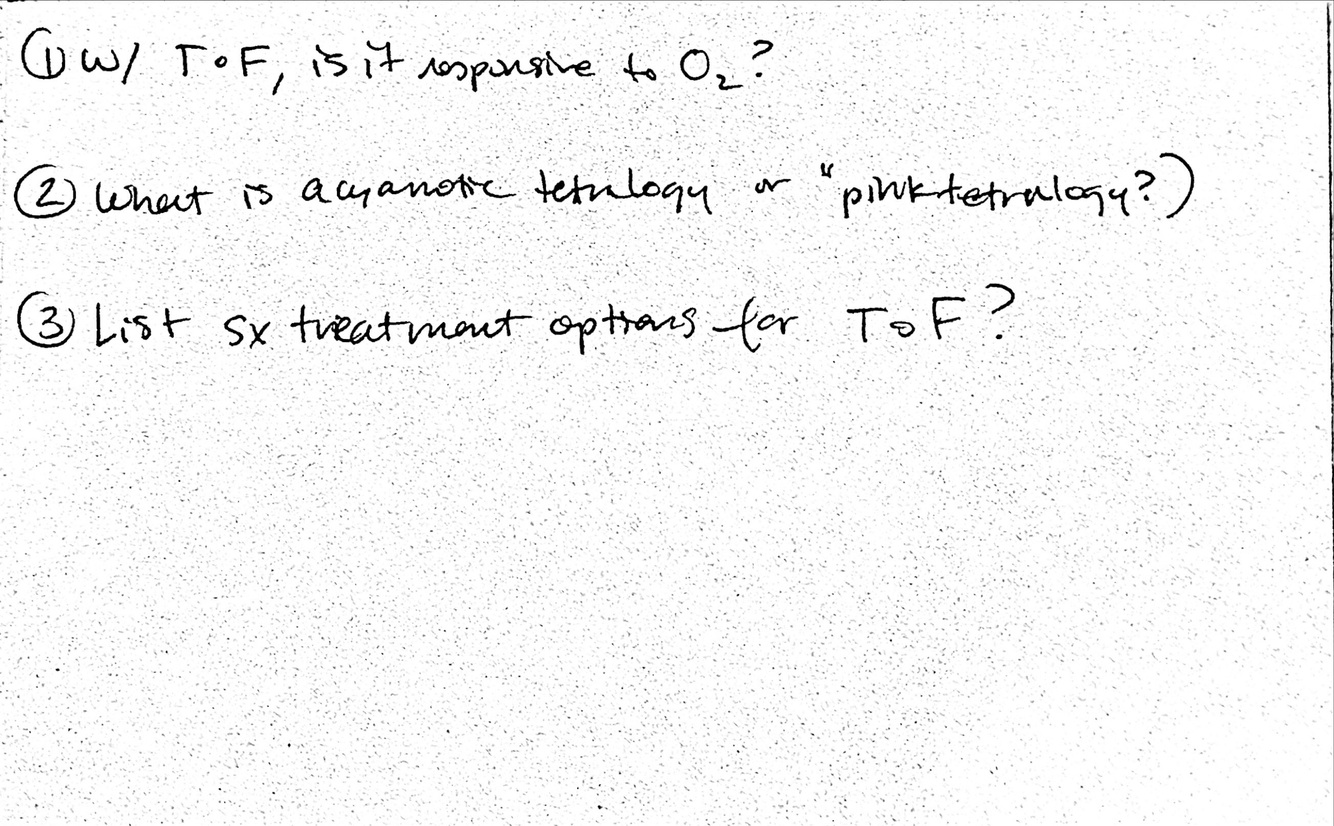 ① W/ ToF, is it responsive to O₂?
② What is acyanotic tetralogy or "pink tetralogy?)
③ List sx treatment options for ToF?